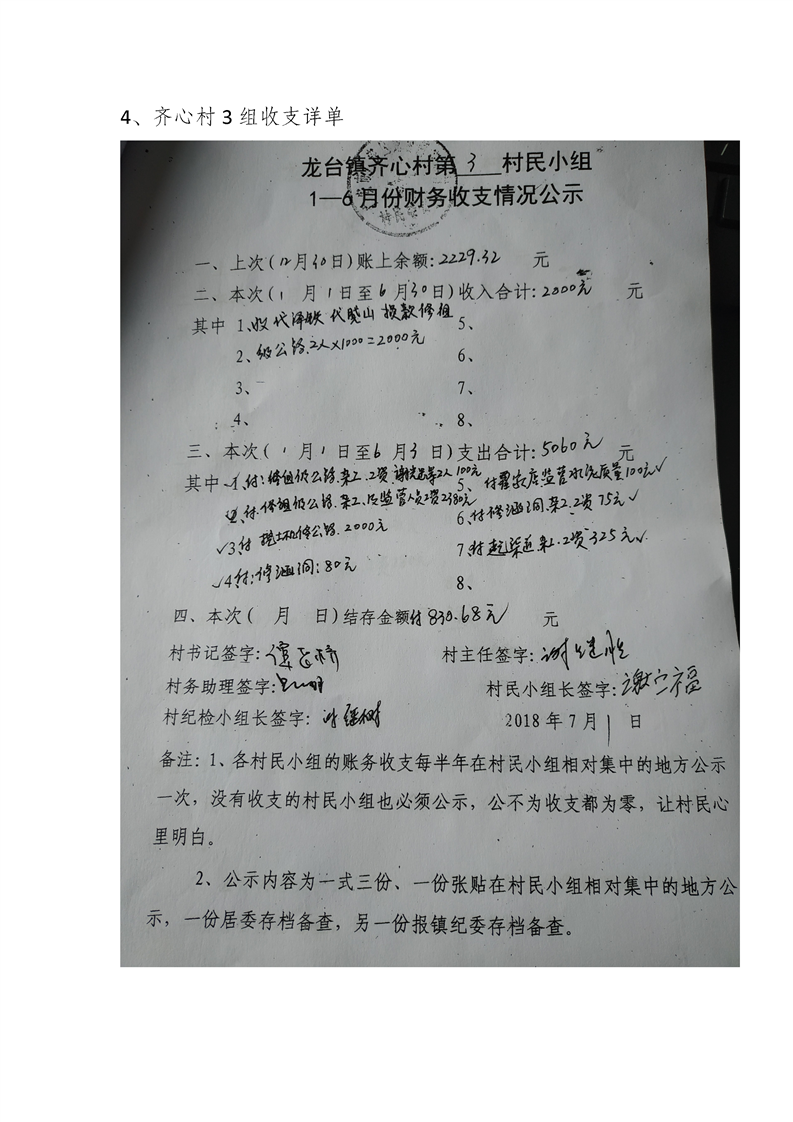 4、齐心村 3 组收支详单
龙台镇齐心村第 3 村民小组
1—6 月份财务收支情况公示
一、上次(12月30日)账上余额:2229.32 元
二、本次(1 月1日至6月30日)收入合计:2000元 元
其中 1、收代泽 代 山 捐款修组 5、
2、级公路.2人×1000=2000元 6、
3、 7、
4、 8、
三、本次(1月1日至6月3日)支出合计:5060元 元
其中 1、付:修组级公路.杂工.工资. 等2人100元 5、付 监管水泥质量100元✓
2、付.修组级公路.杂工.及监管人员工资2380元 6、付修涵洞.杂工.工资75元✓
✓3付 挖土机修公路.2000元 7、付 渠道杂工.工资325元✓
✓4付:修涵洞:80元
8、
四、本次( 月 日)结存金额付830.68元 元
村书记签字: 村主任签字:
村务助理签字: 村民小组长签字:谢 福
村纪检小组长签字: 树 2018 年 7 月 1 日
备注:1、各村民小组的账务收支每半年在村民小组相对集中的地方公示
一次,没有收支的村民小组也必须公示,公不为收支都为零,让村民心
里明白。
2、公示内容为一式三份、一份张贴在村民小组相对集中的地方公
示,一份居委存档备查,另一份报镇纪委存档备查。